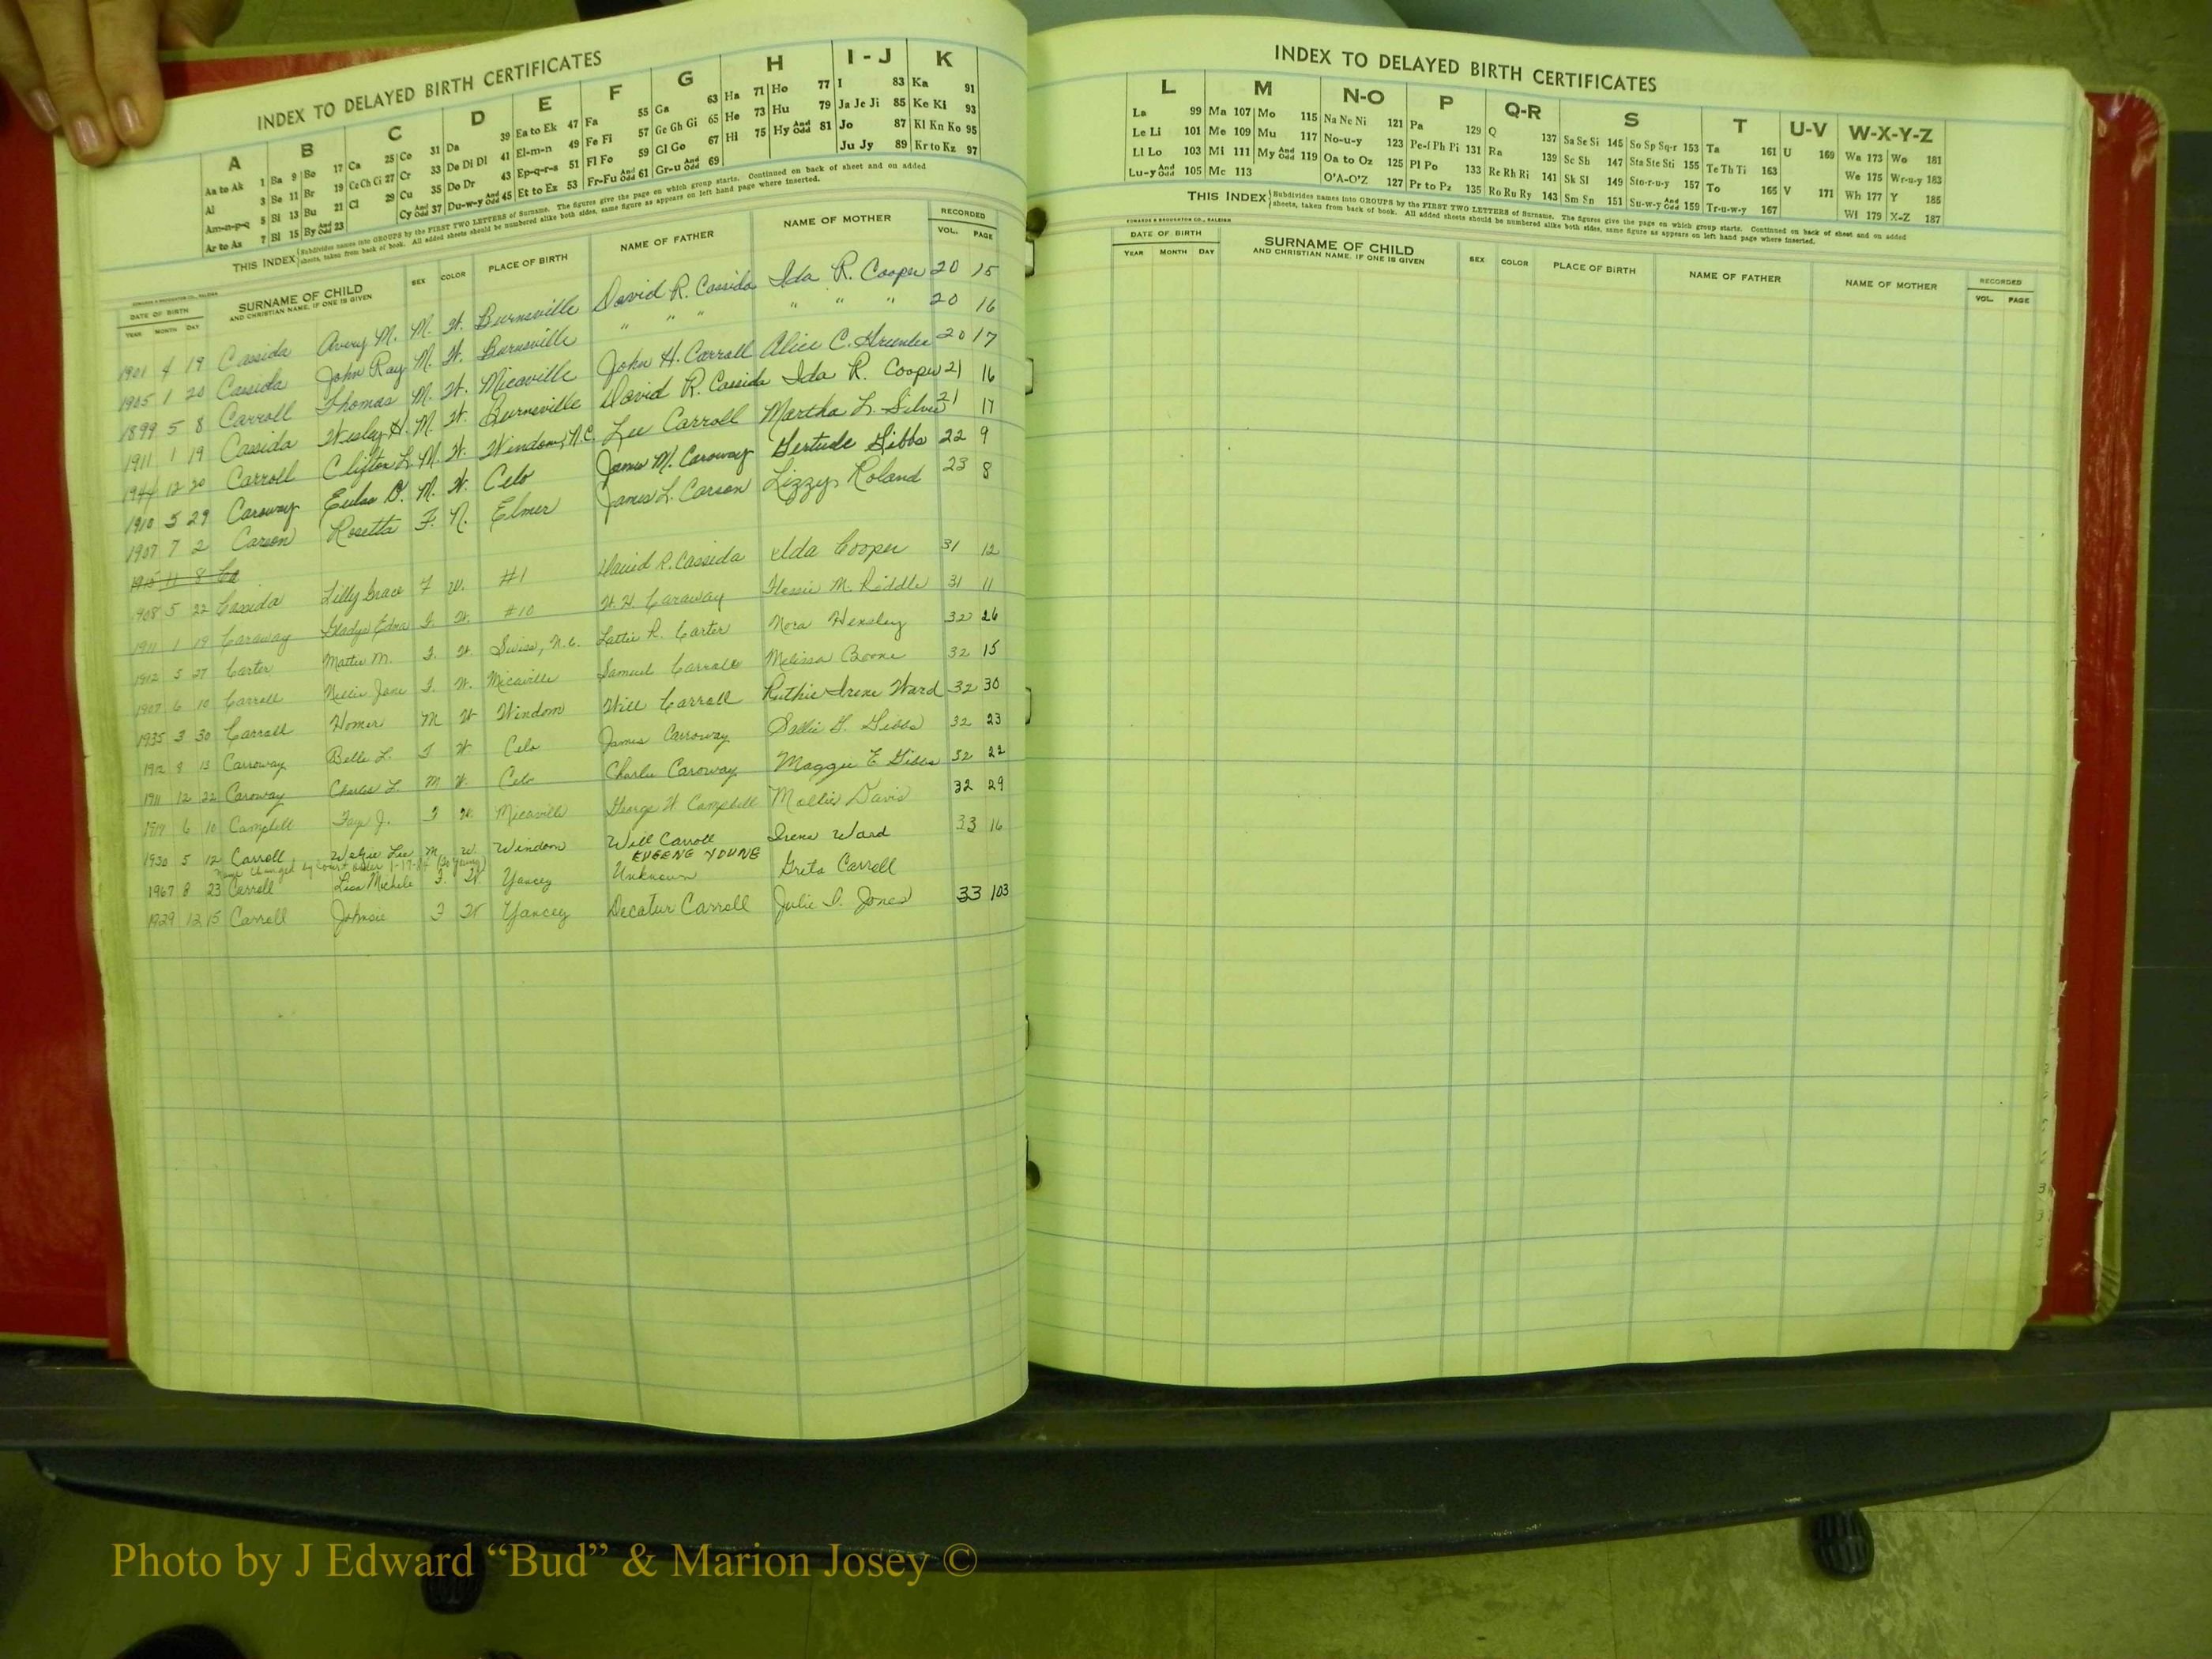 INDEX TO DELAYED BIRTH CERTIFICATES
A B C D E F G H I-J K
Aa to Ak 1 Ba 9 Bo 17 Ca 25 Co 31 Da 39 Ea to Ek 47 Fa 55 Ga 63 Ha 71 Ho 77 I 83 Ka 91
Al 3 Be 11 Br 19 Ce Ch Ci 27 Cr 33 De Di Dl 41 El-m-n 49 Fe Fi 57 Ge Gh Gi 65 He 73 Hu 79 Ja Je Ji 85 Ke Ki 93
Am-n-p-q 5 Bi 13 Bu 21 Cl 29 Cu 35 Do Dr 43 Ep-q-r-s 51 Fl Fo 59 Gl Go 67 Hi 75 Hy And Odd 81 Jo 87 Kl Kn Ko 95
Ar to Az 7 Bl 15 By And Odd 23 Cy And Odd 37 Du-w-y And Odd 45 Et to Ez 53 Fr-Fu And Odd 61 Gr-u And Odd 69 Ju Jy 89 Kr to Kz 97
THIS INDEX Subdivides names into GROUPS by the FIRST TWO LETTERS of Surname. The figures give the page on which group starts. Continued on back of sheet and on added
sheets, taken from back of book. All added sheets should be numbered alike both sides, same figure as appears on left hand page where inserted.
EDWARDS & BROUGHTON CO., RALEIGH
DATE OF BIRTH SURNAME OF CHILD SEX COLOR PLACE OF BIRTH NAME OF FATHER NAME OF MOTHER RECORDED
YEAR MONTH DAY AND CHRISTIAN NAME, IF ONE IS GIVEN VOL. PAGE
1901 4 19 Cassida Avery M. M. W. Burnsville David R. Cassida Ida R. Cooper 20 15
1905 1 20 Cassida John Ray M. W. Burnsville " " " " " " 20 16
1899 5 8 Carroll Thomas M. W. Micaville John H. Carroll Alice C. 20 17
1911 1 19 Cassida Wesley H. M. W. Burnsville David R. Cassida Ida R. Cooper 21 16
1944 12 20 Carroll Clifton L. M. W. Windom, N.C. Lee Carroll Martha L. Silver 21 17
1910 5 29 Caroway M. W. Celo James M. Caroway Gertude Gibbs 22 9
1907 7 2 Carson Rosetta F. N. Elmer James L. Carson Lizzy Roland 23 8
11 8 Ca
1908 5 22 Cassida Lilly Grace F W. #1 David R. Cassida Ida Cooper 31 12
1911 1 19 Caraway Gladys Edna F. W. #10 W. H. Caraway M. Riddle 31 11
1912 5 27 Carter Mattie M. F. W. Swiss, N.C. Lattie R. Carter Nora Hensley 32 26
1907 6 10 Carroll Nellie Jane F. W. Micaville Samuel Carroll Melissa Boone 32 15
1935 3 30 Carroll Homer M W Windom Will Carroll Ruthie Irene Ward 32 30
1912 8 13 Carroway Belle L. F W Celo James Carroway Sallie G. Gibbs 32 23
1911 12 22 Caroway Charles L. M W. Celo Charlie Caroway Maggie E Gibbs 32 22
1919 6 10 Campbell Faye J. F W. Micaville George W Campbell Mollie Davis 32 29
1930 5 12 Carroll Lee M W Windom Will Carroll Irene Ward 33 16
Name changed by Court order 1-17- (to Young) EUGENE YOUNG
1967 8 23 Carroll Lisa Michele F. W. Yancey Unknown Greta Carroll
1929 12 15 Carroll Johnsie F W Yancey Decatur Carroll Julie D. Jones 33 103
INDEX TO DELAYED BIRTH CERTIFICATES
L M N-O P Q-R S T U-V W-X-Y-Z
La 99 Ma 107 Mo 115 Na Ne Ni 121 Pa 129 Q 137 Sa Se Si 145 So Sp Sq-r 153 Ta 161 U 169 Wa 173 Wo 181
Le Li 101 Me 109 Mu 117 No-u-y 123 Pe-f Ph Pi 131 Ra 139 Sc Sh 147 Sta Ste Sti 155 Te Th Ti 163 We 175 Wr-u-y 183
Ll Lo 103 Mi 111 My And Odd 119 Oa to Oz 125 Pl Po 133 Re Rh Ri 141 Sk Sl 149 Sto-r-u-y 157 To 165 V 171 Wh 177 Y 185
Lu-y And Odd 105 Mc 113 O'A-O'Z 127 Pr to Pz 135 Ro Ru Ry 143 Sm Sn 151 Su-w-y And Odd 159 Tr-u-w-y 167 Wi 179 X-Z 187
THIS INDEX Subdivides names into GROUPS by the FIRST TWO LETTERS of Surname. The figures give the page on which group starts. Continued on back of sheet and on added
sheets, taken from back of book. All added sheets should be numbered alike both sides, same figure as appears on left hand page where inserted.
EDWARDS & BROUGHTON CO., RALEIGH
DATE OF BIRTH SURNAME OF CHILD SEX COLOR PLACE OF BIRTH NAME OF FATHER NAME OF MOTHER RECORDED
YEAR MONTH DAY AND CHRISTIAN NAME, IF ONE IS GIVEN VOL. PAGE
Photo by J Edward “Bud” & Marion Josey ©